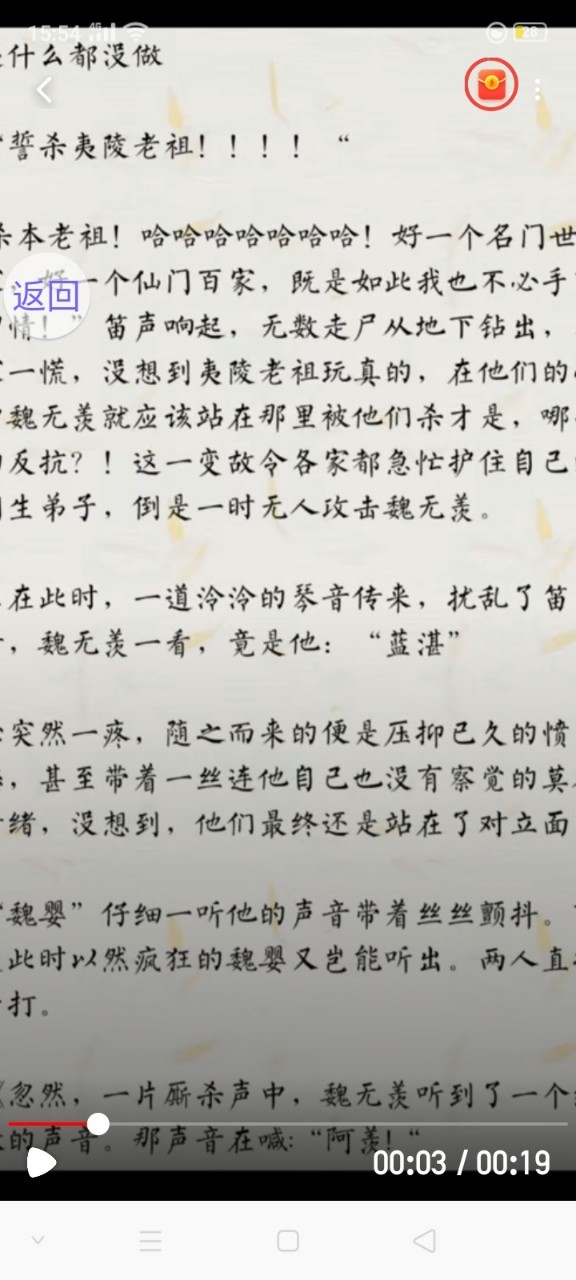 15:54 4G 28
什么都没做
“誓杀夷陵老祖！！！！“
杀本老祖！哈哈哈哈哈哈哈！好一个名门世
好一个仙门百家，既是如此我也不必手
返回
情！”笛声响起，无数走尸从地下钻出，
一慌，没想到夷陵老祖玩真的，在他们的
魏无羡就应该站在那里被他们杀才是，哪
反抗？！这一变故令各家都急忙护住自己
生弟子，倒是一时无人攻击魏无羡。
在此时，一道泠泠的琴音传来，扰乱了笛
，魏无羡一看，竟是他：“蓝湛”
突然一疼，随之而来的便是压抑已久的愤
，甚至带着一丝连他自己也没有察觉的莫
绪，没想到，他们最终还是站在了对立面
“魏婴”仔细一听他的声音带着丝丝颤抖。
此时以然疯狂的魏婴又岂能听出。两人直
打。
忽然，一片厮杀声中，魏无羡听到了一个
的声音。那声音在喊：“阿羡！“
00:03 / 00:19